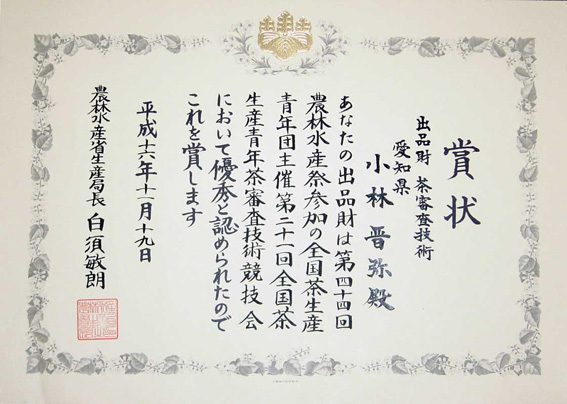 賞状
出品財 茶審査技術
愛知県
小林晋弥殿
あなたの出品財は第四十四回
農林水産祭参加の全国茶生産
青年団主催第二十一回全国茶
生産青年茶審査技術競技会
において優秀と認められたので
これを賞します
平成十六年十一月十九日
農林水産省生産局長 白須敏朗